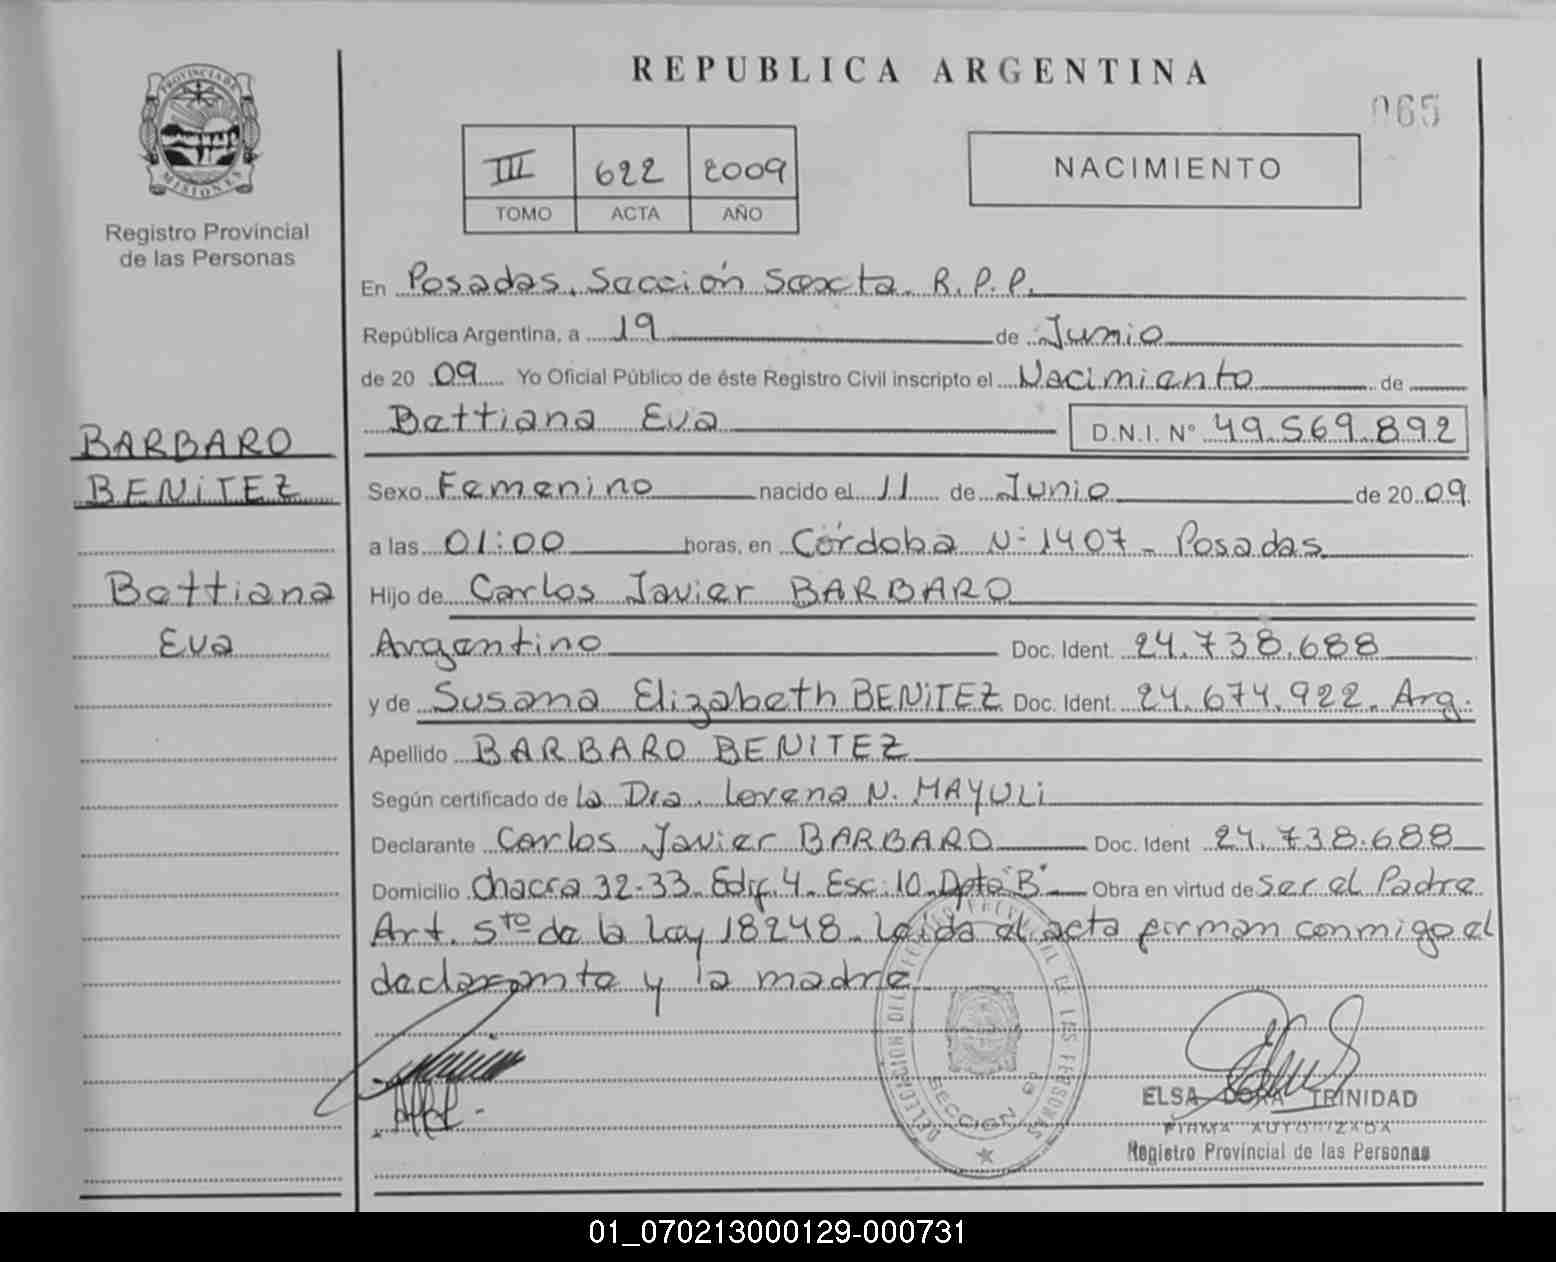 REPUBLICA ARGENTINA
065
PROVINCIA DE MISIONES
Registro Provincial
de las Personas
III 622 2009
TOMO ACTA AÑO
NACIMIENTO
En Posadas, Sección Sexta. R.P.P.
República Argentina, a 19 de Junio
de 2009 Yo Oficial Público de éste Registro Civil inscripto el Nacimiento de
Bettiana Eva D.N.I. Nº 49.569.892
BARBARO
BENiTEZ
Bettiana
Eva
Sexo Femenino nacido el 11 de Junio de 2009
a las 01:00 horas, en Córdoba Nº 1407 - Posadas
Hijo de Carlos Javier BARBARO
Argentino Doc. Ident. 24.738.688
y de Susana Elizabeth BENiTEZ Doc. Ident. 24.674.922. Arg.
Apellido BARBARO BENITEZ
Según certificado de la Dra. Lorena N. MAYULi
Declarante Carlos Javier BARBARO Doc. Ident 24.738.688
Domicilio Chacra 32-33. Edif. 4. Esc: 10. Dpto "B" Obra en virtud de ser el Padre
Art. 5to de la Ley 18248. Leida el acta firman conmigo el
declarante y la madre
SECCION 6a
ELSA DORA TRINIDAD
FIRMA AUTORIZADA
Registro Provincial de las Personas
01_070213000129-000731